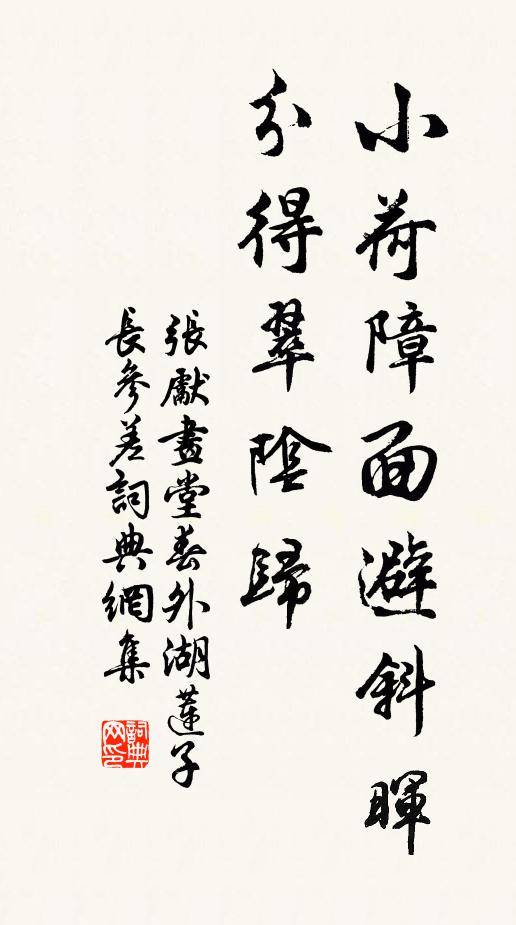 小荷障面避斜暉
分得翠陰歸
張獻畫堂春外湖蓮子
長參差詞典網集
詞典
网印